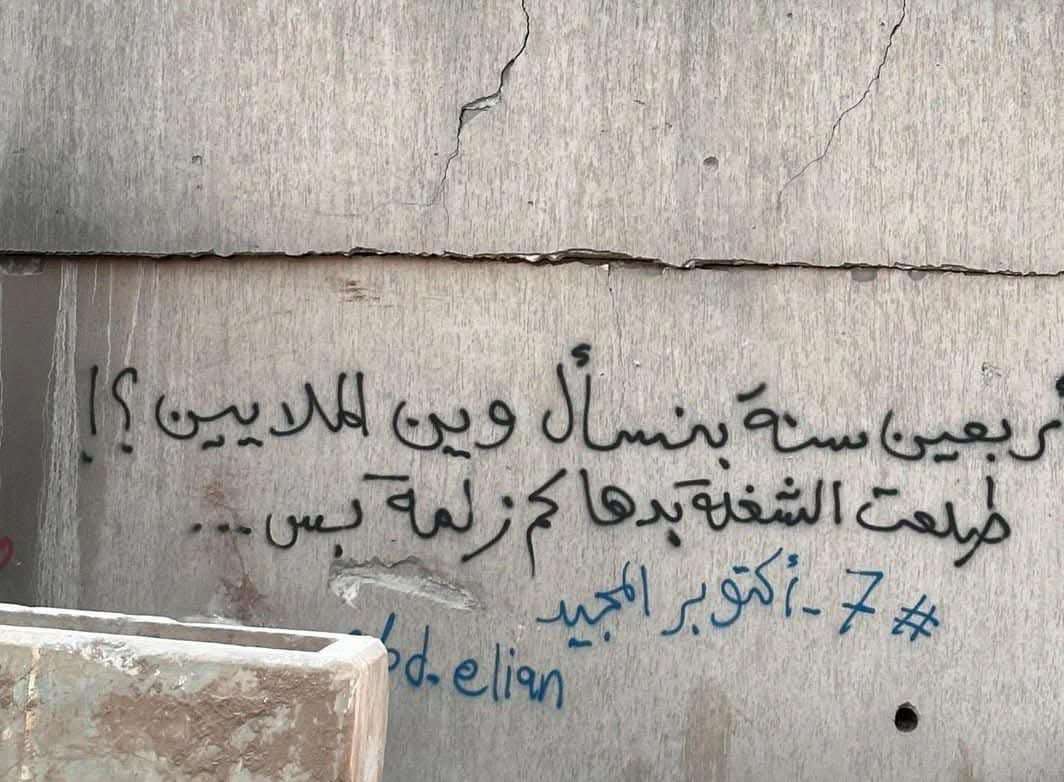 أربعين سنة بنسأل وين الملايين؟!
طلعت الشغلة بدها كم زلمة بس...
# 7 - أكتوبر المجيد
bd.elian